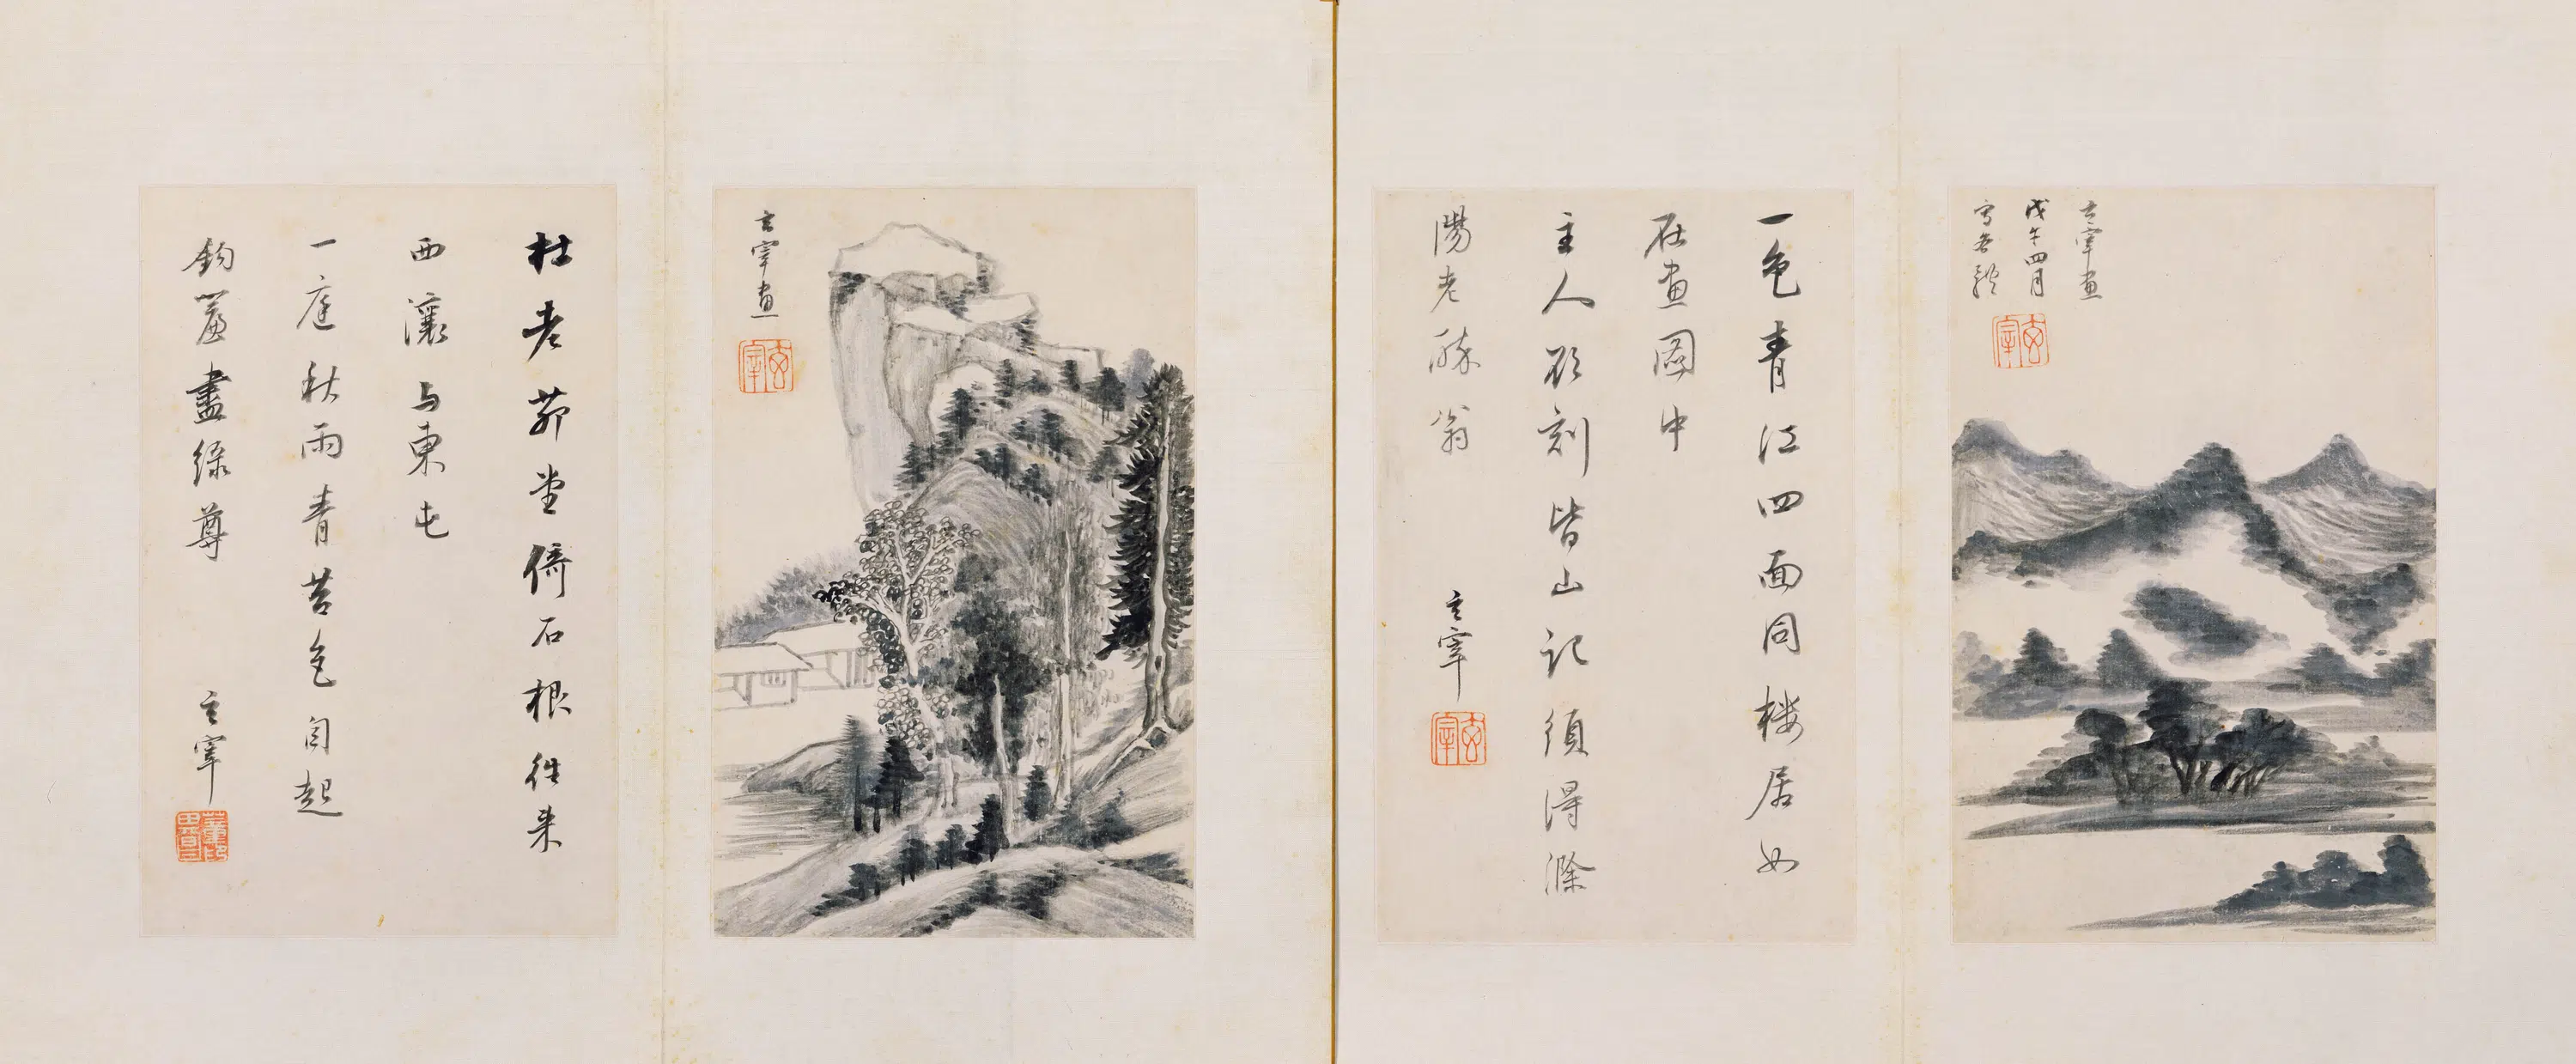 玄宰畫
戊午四月
寫
玄宰
一色青江四面同樓居如
在畫圖中
主人頃刻皆山記須得滁
陽老醉翁
玄宰
玄宰
玄宰畫
玄宰
杜老茆堂倚石根往來
西瀼与東屯
一庭秋雨青苔色自起
鈎簾盡綠尊
玄宰
董其昌印